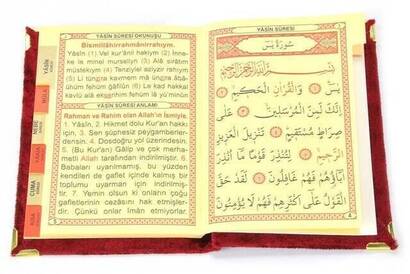 YÂSÎN SÛRESİ OKUNUŞU
Bismillâhirrahmânirrahym.
Yâsîn (1) Vel kur'ânil hakiym (2) İnne-
ke le minel murseliyn (3) Alâ sirâtim
müstekıym (4) Tenziylel aziyzir rahıym
(5) Li tünzira kavmem mâ ünzira âbâ-
ühüm fehüm ğâfilûn (6) Le kad hakkal
kavlü alâ ekserihim fehüm lâ yü'minûn
YÂSÎN SÛRESİ ANLAMI
Rahman ve Rahim olan Allah'ın İsmiyle.
1. Yâsîn, 2. Hikmet dolu Kur'an hakkı
için, 3. Sen şüphesiz peygamberler-
densin. 4. Dosdoğru yol üzerindesin.
5. (Bu Kur'an) Gâlip ve çok merha-
metli Allah tarafından indirilmiştir. 6.
Babaları uyarılmamış, bu yüzden
kendileri de gaflet içinde kalmış bir
toplumu uyarman için indirilmiştir.
7. Yemin olsun ki onların çoğu
gafletlerinin cezâsını hak etmişler-
dir. Çünkü onlar îman etmiyorlar.
YÂSÎN
MÜLK
NEBE
CUMA
YÂSÎN SÛRESİ
سُورَةُ يٰسٓ
بِسْمِ اللّٰهِ الرَّحْمٰنِ الرَّحِيمِ
يٰسٓ ﴿١﴾ وَالْقُرْاٰنِ الْحَكِيمِ ﴿٢﴾
اِنَّكَ لَمِنَ الْمُرْسَلِينَ ﴿٣﴾ عَلٰى
صِرَاطٍ مُسْتَقِيمٍ ﴿٤﴾ تَنْزِيلَ الْعَزِيزِ
الرَّحِيمِ ﴿٥﴾ لِتُنْذِرَ قَوْمًا مَٓا اُنْذِرَ
اٰبَٓاؤُ۬هُمْ فَهُمْ غَافِلُونَ ﴿٦﴾ لَقَدْ حَقَّ
الْقَوْلُ عَلٰٓى اَكْثَرِهِمْ فَهُمْ لَا يُؤْمِنُونَ
4